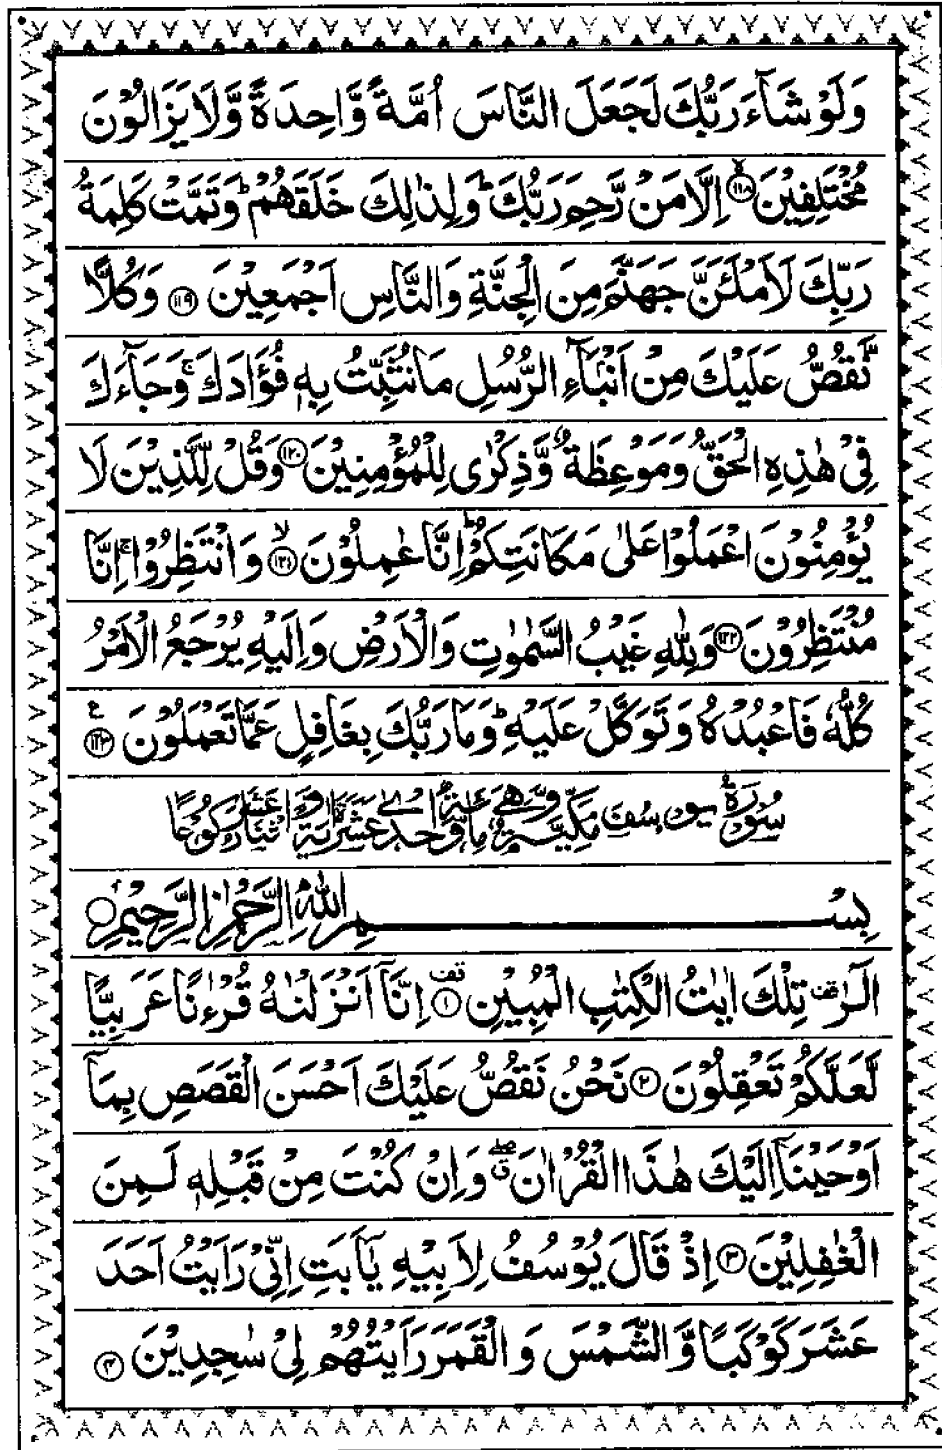 وَلَوْ شَآءَ رَبُّكَ لَجَعَلَ النَّاسَ اُمَّةً وَّاحِدَةً وَّلَا يَزَالُوْنَ
مُخْتَلِفِيْنَ ﴿۱۱۸﴾ۙ اِلَّا مَنْ رَّحِمَ رَبُّكَ ؕ وَلِذٰلِكَ خَلَقَهُمْ ؕ وَتَمَّتْ كَلِمَةُ
رَبِّكَ لَاَمْلَـَٔنَّ جَهَنَّمَ مِنَ الْجِنَّةِ وَالنَّاسِ اَجْمَعِيْنَ ﴿۱۱۹﴾ وَكُلًّا
نَّقُصُّ عَلَيْكَ مِنْ اَنْۢبَآءِ الرُّسُلِ مَا نُثَبِّتُ بِهٖ فُؤَادَكَ ۚ وَجَآءَكَ
فِيْ هٰذِهِ الْحَقُّ وَمَوْعِظَةٌ وَّذِكْرٰى لِلْمُؤْمِنِيْنَ ﴿۱۲۰﴾ وَقُلْ لِّلَّذِيْنَ لَا
يُؤْمِنُوْنَ اعْمَلُوْا عَلٰى مَكَانَتِكُمْ ؕ اِنَّا عٰمِلُوْنَ ﴿۱۲۱﴾ۙ وَانْتَظِرُوْا ۚ اِنَّا
مُنْتَظِرُوْنَ ﴿۱۲۲﴾ وَلِلّٰهِ غَيْبُ السَّمٰوٰتِ وَالْاَرْضِ وَاِلَيْهِ يُرْجَعُ الْاَمْرُ
كُلُّهٗ فَاعْبُدْهُ وَتَوَكَّلْ عَلَيْهِ ؕ وَمَا رَبُّكَ بِغَافِلٍ عَمَّا تَعْمَلُوْنَ ﴿۱۲۳﴾ ع
سُوْرَةُ يُوْسُفَ مَكِّيَّةٌ وَّهِيَ مِائَةٌ وَّاِحْدٰى عَشَرَةَ اٰيَةً وَّاثْنَا عَشَرَ رُكُوْعًا
بِسْمِ اللّٰهِ الرَّحْمٰنِ الرَّحِيْمِ
الٓرٰ ۫ تِلْكَ اٰيٰتُ الْكِتٰبِ الْمُبِيْنِ ﴿۱﴾ اِنَّآ اَنْزَلْنٰهُ قُرْءٰنًا عَرَبِيًّا
لَّعَلَّكُمْ تَعْقِلُوْنَ ﴿۲﴾ نَحْنُ نَقُصُّ عَلَيْكَ اَحْسَنَ الْقَصَصِ بِمَآ
اَوْحَيْنَآ اِلَيْكَ هٰذَا الْقُرْاٰنَ ۖ وَاِنْ كُنْتَ مِنْ قَبْلِهٖ لَمِنَ
الْغٰفِلِيْنَ ﴿۳﴾ اِذْ قَالَ يُوْسُفُ لِاَبِيْهِ يٰٓاَبَتِ اِنِّيْ رَاَيْتُ اَحَدَ
عَشَرَ كَوْكَبًا وَّالشَّمْسَ وَالْقَمَرَ رَاَيْتُهُمْ لِيْ سٰجِدِيْنَ ﴿۴﴾